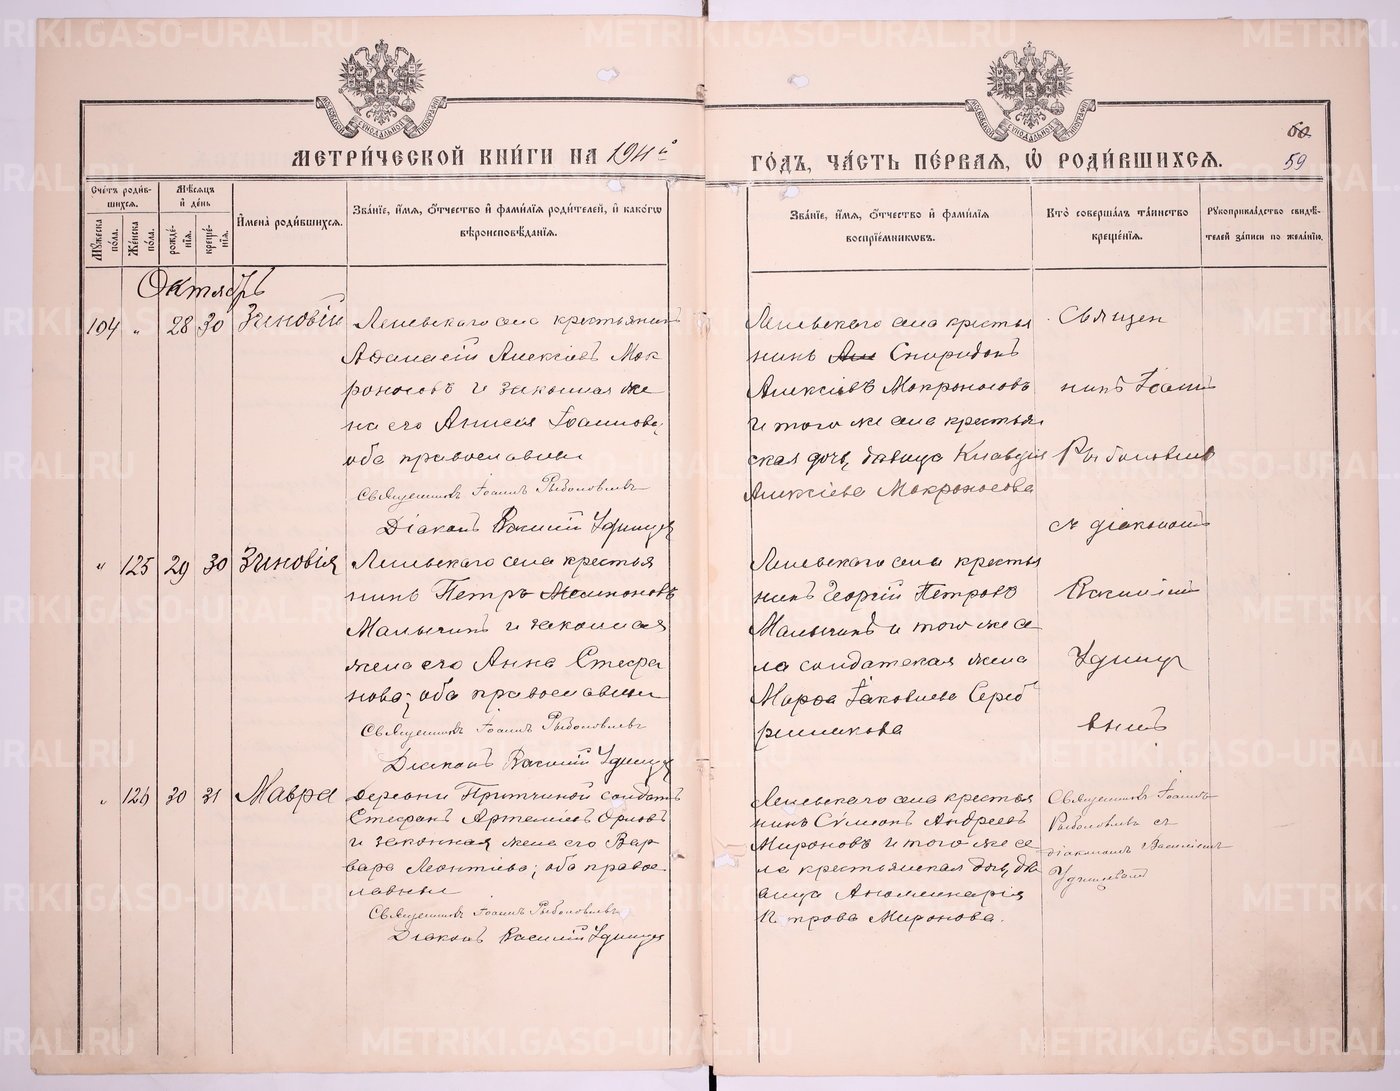 МЕТРИ́ЧЕСКОЙ КНИ́ГИ НА 1911й ГО́ДЪ, ЧА́СТЬ ПЕ́РВАЯ, Ѡ РОДИ́ВШИХСЯ.
60
59
Счетъ роди́вшихся.
Мужеска по́ла.
Же́нска по́ла.
Мѣ́сяцъ и де́нь
рожде́нія.
креще́нія.
Имена́ роди́вшихся.
Зва́ніе, и́мя, о́тчество и фами́лія роди́телей, и како́гѡ
вѣроисповѣ́данія.
Зва́ніе, и́мя, о́тчество и фами́лія
воспріе́мникѡвъ.
Кто̀ соверша́лъ та́инство
креще́нія.
Рукоприкла́дство свидѣ́-
телей за́писи по жела́нію.
Октябрь
104 " 28 30 Зиновій
крестьянинъ
Аѳанасій Алексіевъ Мок
роносовъ и законная же
на его Анисія Іоаннова,
оба православные
Священникъ Іоаннъ Рыболовлевъ
Діаконъ Василій Удинцев
села крестья
нинъ Спиридонъ
Алексіевъ Мокроносовъ
и того же села крестьян
ская дочь, дѣвица Клавдія
Алексіева Мокроносова
Священ
никъ Іоаннъ
Рыболовлев
съ діакономъ
" 125 29 30 Зиновія
села крестья
нинъ Петръ
Малыгинъ и законная
жена его Анна Стефа
нова; оба православные
Священникъ Іоаннъ Рыболовлевъ
Діаконъ Василій Удинцев
села крестья
нинъ Георгій Петровъ
Малыгинъ и того же се
ла солдатская жена
Марѳа Іаковлева Сереб
ренникова
Василіем
Удинце
вымъ
" 126 30 31 Мавра
деревни солдатъ
Стефанъ Артеміевъ Орловъ
и законная жена его Вар
вара Леонтіева; оба право
славные
Священникъ Іоаннъ Рыболовлевъ
Діаконъ Василій Удинцев
села крестья
нинъ Сѵмеонъ Андреевъ
Мироновъ и того же се
ла крестьянская дочь, дѣ
вица Аполлинарія
Петрова Миронова.
Священникъ Іоаннъ
Рыболовлевъ съ
діакономъ Василіемъ
Удинцевымъ
METRIKI.GASO-URAL.RU